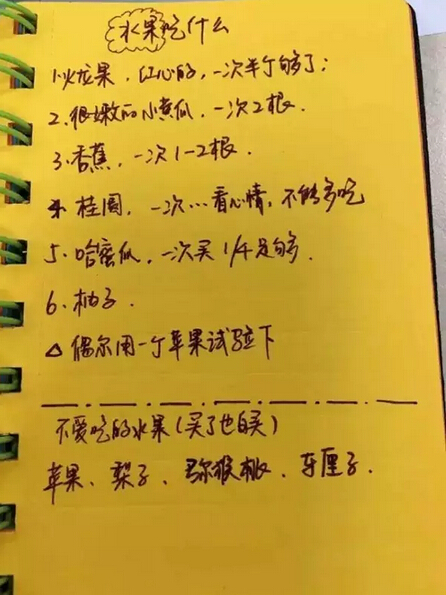 水果吃什么
1.火龙果，红心的，一次半个够了；
2.很嫩的小黄瓜，一次2根.
3.香蕉，一次1-2根.
4.桂圆，一次…看心情，不能多吃
5.哈密瓜，一次买1/4足够.
6.柚子.
△偶尔用一个苹果试验下
不爱吃的水果(买了也白买)
苹果、梨子、弥猴桃、车厘子.